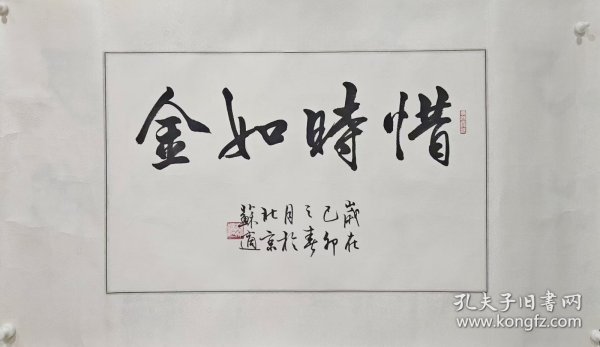 惜時如金
歲在
己卯
之春
月於
北京
蘇適
孔夫子旧书网
www.kongfz.com